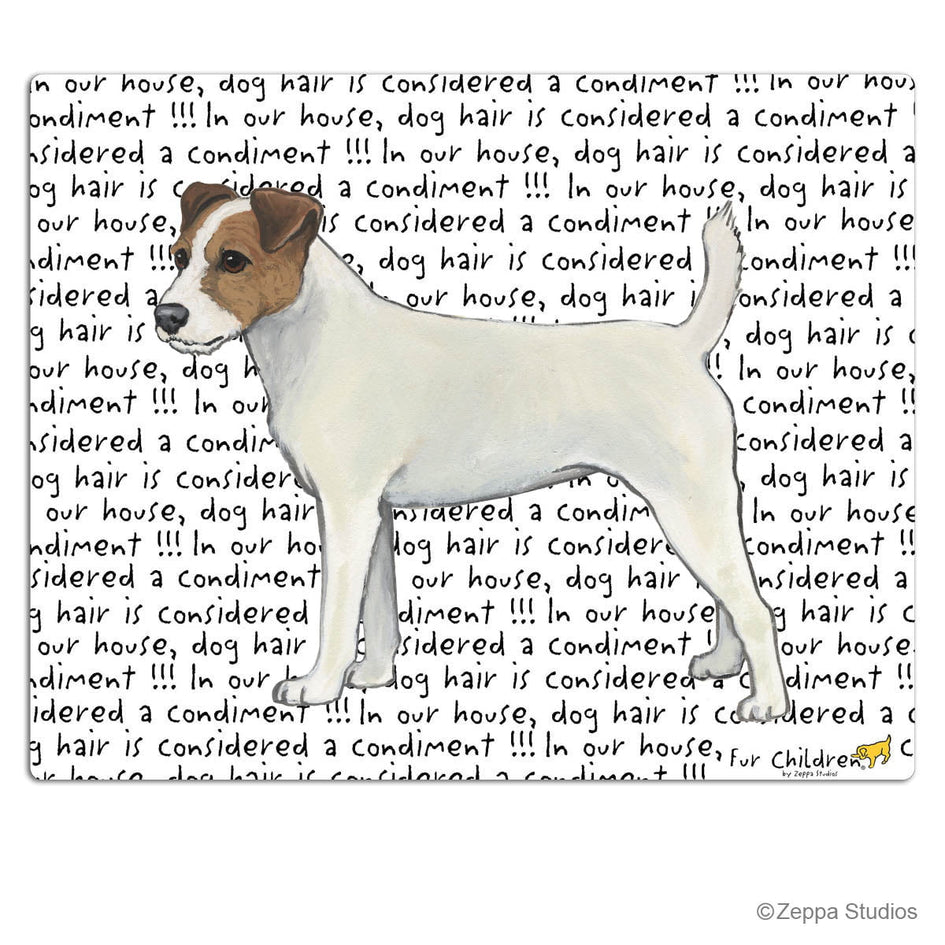 In our house, dog hair is considered a condiment !!! In our hous
ondiment !!! In our house, dog hair is considered a condiment !
nsidered a condiment !!! In our house, dog hair is considered a
og hair is considered a condiment !!! In our house, dog hair is
our house, is considered a condiment !!! In our house
ndiment !!! e, dog hair is considered condiment !!!
sidered a our house, dog hair i onsidered a
g hair is !!! , dog hair is c
our house, dog h ! In our house,
ndiment !!! In our condiment !!
nsidered a condim considered a
og hair is consider In ou , dog hair is
our house, dog hair nsidered a condim In our house
ndiment !!! In our ho dog hair is consider condiment !!
sidered a condiment our house, dog hair nsidered a
g hair is considered diment !!! In our house g hair is c
our house, dog hair sidered a condiment ! our house
ndiment !!! In our dog hair is considered a c diment !!
idered a condiment !!! In our house, dog hair is considered a c
g hair is considered a condiment !!! In our house, c
our house, dog hair is considered a condiment !!!
Fur Children®
by Zeppa Studios
©Zeppa Studios